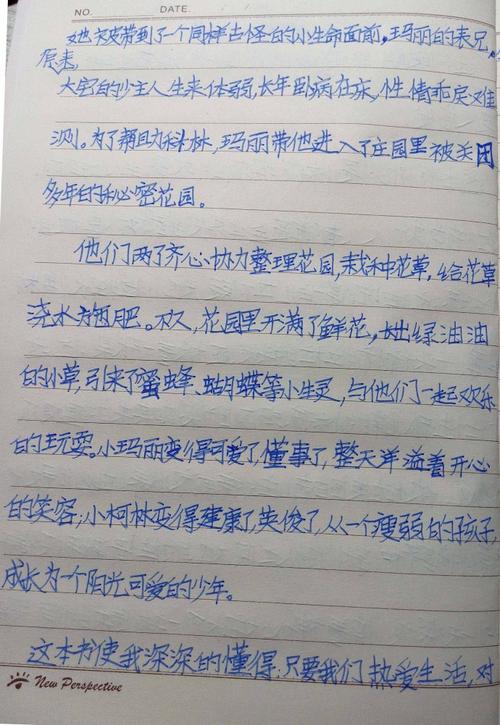 NO. DATE.
她又被带到了一个同样古怪的小生命面前,玛丽的表兄,
原来,
大宅的少主人生来体弱,长年卧病在床,性情乖戾难
测。为了帮助科林,玛丽带他进入了庄园里被关闭
多年的秘密花园。
他们两了齐心协力整理花园,栽种花草,给花草
浇水施肥。不久,花园里开满了鲜花,长出绿油油
的小草,引来了蜜蜂、蝴蝶等小生灵,与他们一起欢乐
的玩耍。小玛丽变得可爱了,懂事了,整天洋溢着开心
的笑容,小柯林变得健康了,英俊了,从一个瘦弱的孩子,
成长为一个阳光可爱的少年。
这本书使我深深的懂得:只要我们热爱生活,对
New Perspective